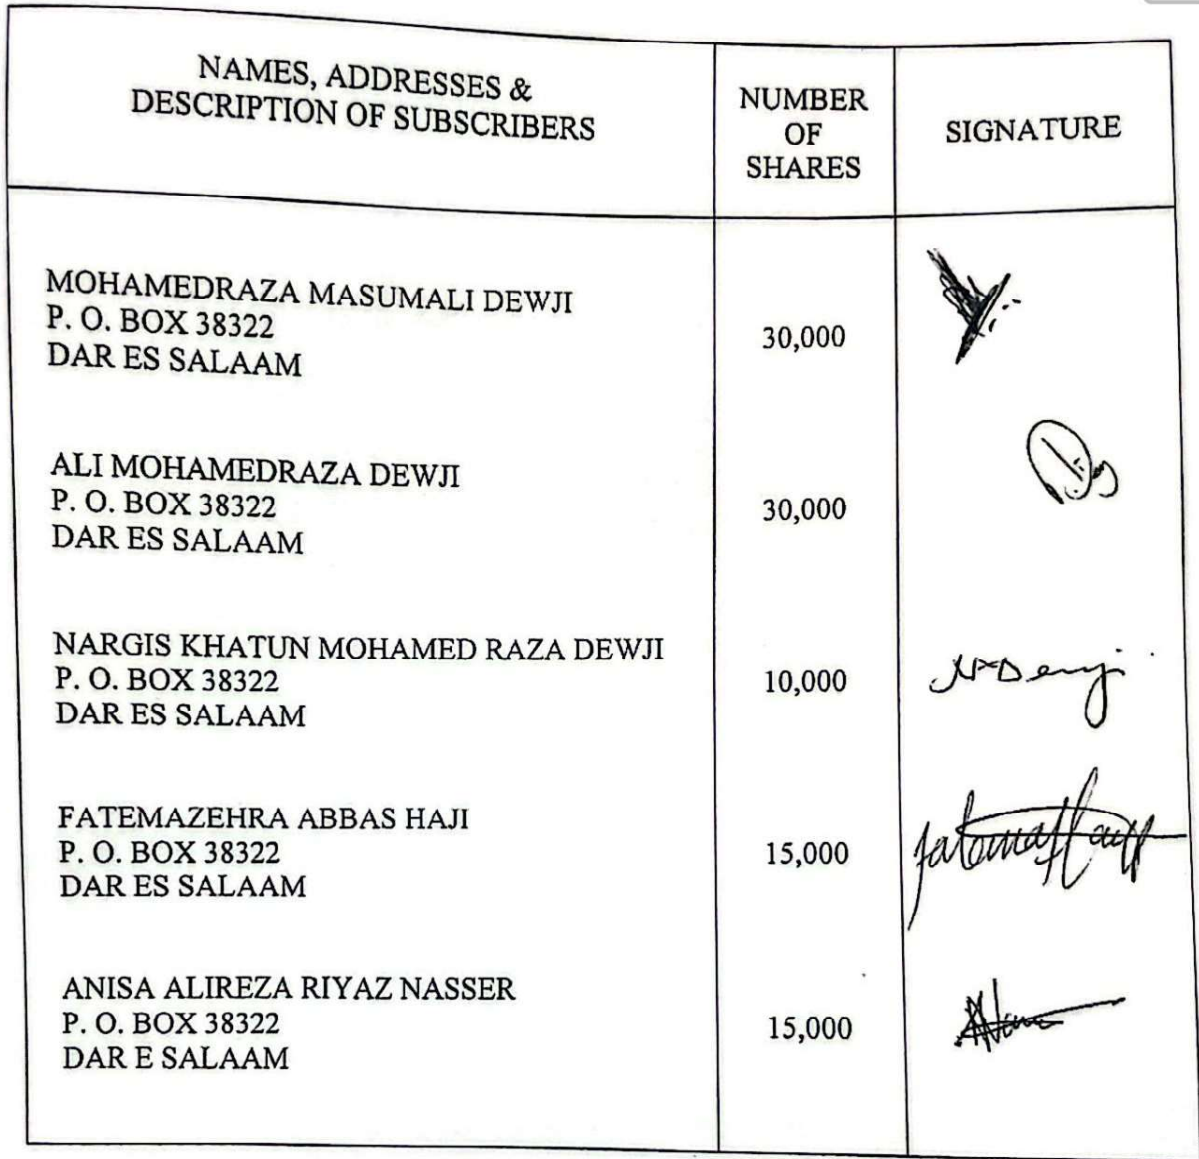 NAMES, ADDRESSES &
DESCRIPTION OF SUBSCRIBERS
NUMBER
OF
SHARES
SIGNATURE
MOHAMEDRAZA MASUMALI DEWJI
P. O. BOX 38322
DAR ES SALAAM
30,000
ALI MOHAMEDRAZA DEWJI
P. O. BOX 38322
DAR ES SALAAM
30,000
NARGIS KHATUN MOHAMED RAZA DEWJI
P. O. BOX 38322
DAR ES SALAAM
10,000
FATEMAZEHRA ABBAS HAJI
P. O. BOX 38322
DAR ES SALAAM
15,000
ANISA ALIREZA RIYAZ NASSER
P. O. BOX 38322
DAR E SALAAM
15,000